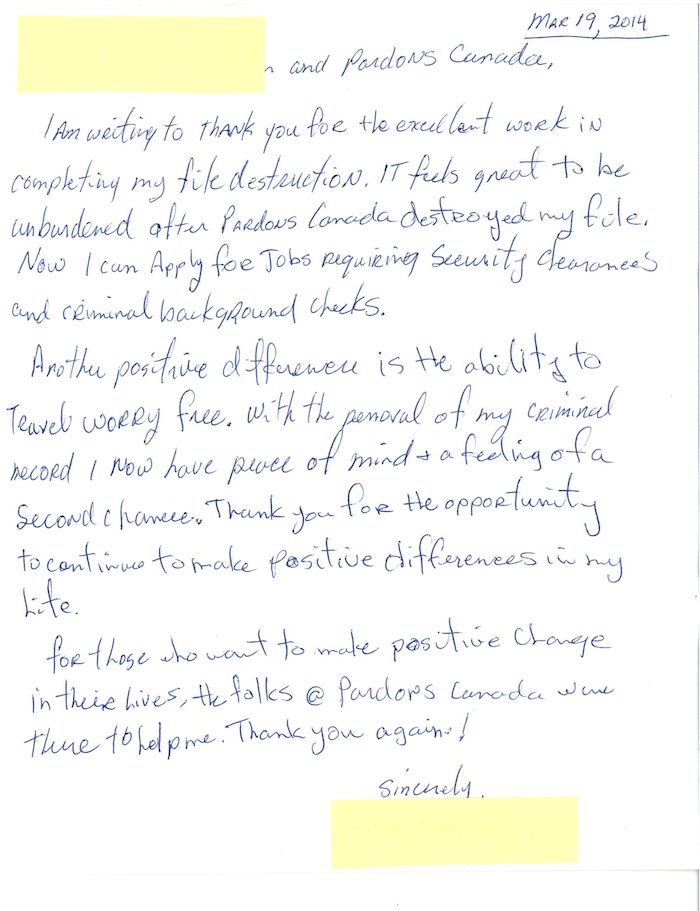 MAR 19, 2014
n and Pardons Canada,
I Am writing to THANK you for the excellent work in
completing my file destruction. IT feels great to be
unburdened after Pardons Canada destroyed my file.
Now I can Apply for Jobs requiring Security clearances
and criminal background checks.
Another positive difference is the ability to
Travel worry free. With the removal of my criminal
record I now have peace of mind + a feeling of a
Second chance. Thank you for the opportunity
to continue to make positive differences in my
Life.
for those who want to make positive change
in their lives, the folks @ Pardons Canada were
there to help me. Thank you again!
Sincerely.